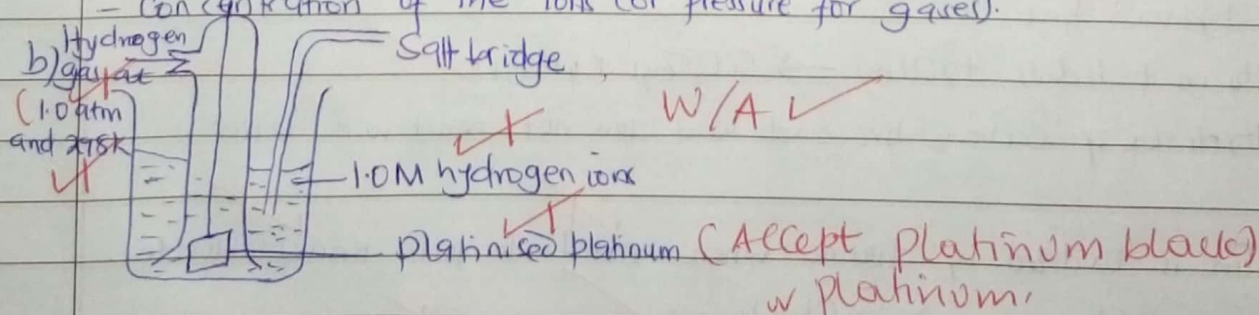 - Concentration of the ions (or pressure for gases).
b) Hydrogen
gas at
(1.0 atm
and 298K
Salt bridge
W/A
1.0M hydrogen ions
platinised platinum (Accept platinum black)
w platinum.